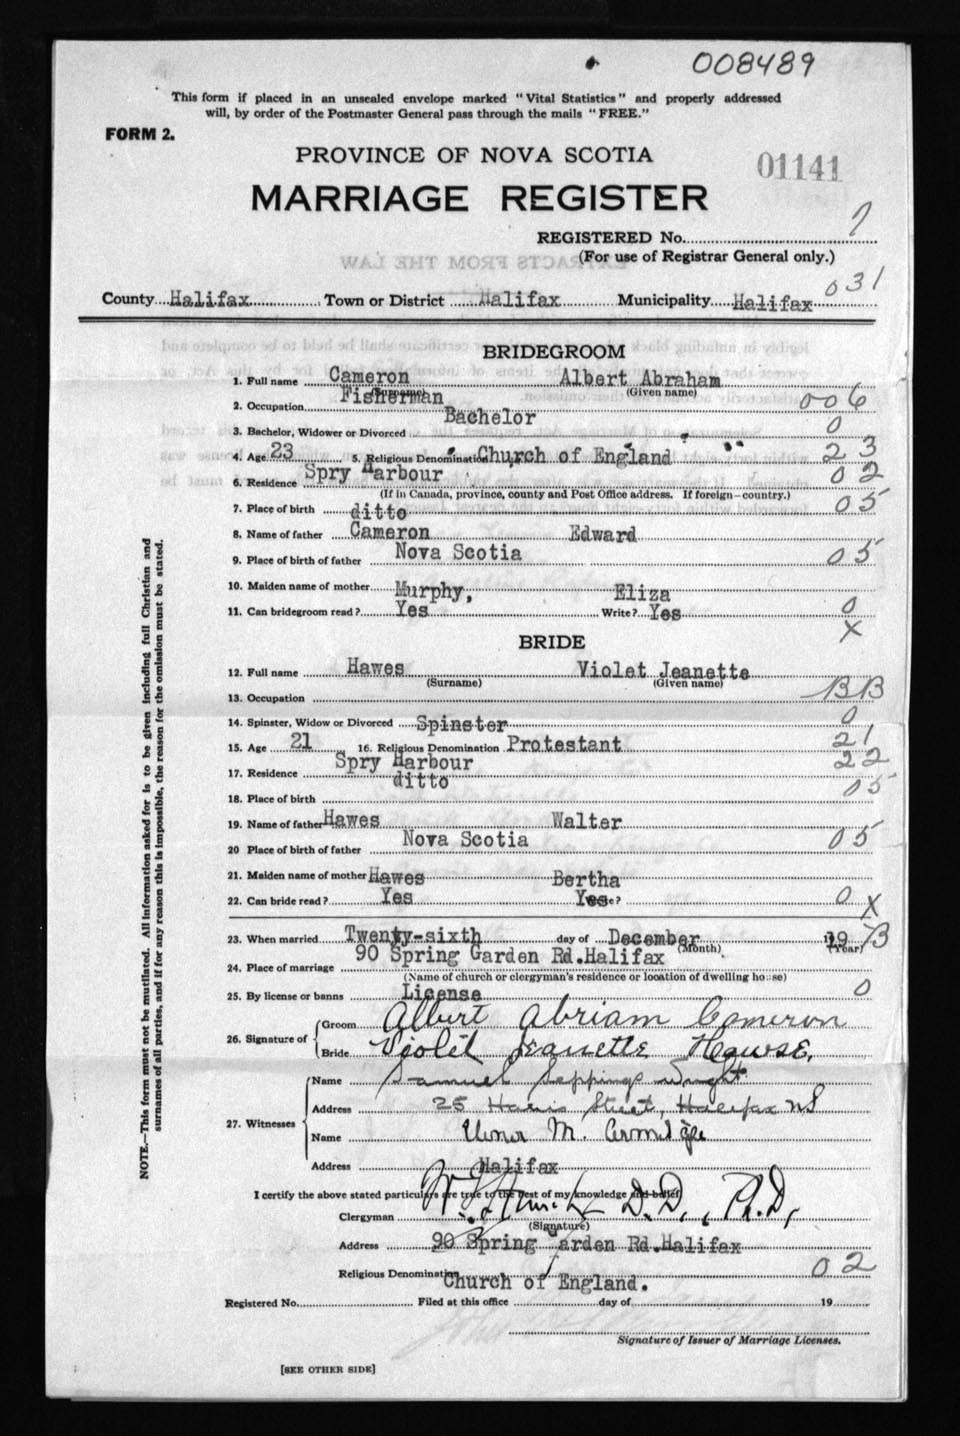 008489
This form if placed in an unsealed envelope marked "Vital Statistics" and properly addressed
will, by order of the Postmaster General pass through the mails "FREE."
FORM 2.
PROVINCE OF NOVA SCOTIA
01141
MARRIAGE REGISTER
REGISTERED No. 7
(For use of Registrar General only.)
EXTRACTS FROM THE LAW
031
County Halifax Town or District Halifax Municipality Halifax
BRIDEGROOM
1. Full name Cameron Albert Abraham
(Surname) (Given name)
2. Occupation Fisherman 006
3. Bachelor, Widower or Divorced Bachelor 0
4. Age 23 5. Religious Denomination Church of England 23
6. Residence Spry Harbour 02
(If in Canada, province, county and Post Office address. If foreign—country.)
7. Place of birth ditto 05
8. Name of father Cameron Edward
9. Place of birth of father Nova Scotia 05
10. Maiden name of mother Murphy, Eliza
11. Can bridegroom read? Yes Write? Yes 0
X
BRIDE
12. Full name Hawes Violet Jeanette
(Surname) (Given name)
13. Occupation BB
14. Spinster, Widow or Divorced Spinster 0
15. Age 21 16. Religious Denomination Protestant 21
17. Residence Spry Harbour 22
18. Place of birth ditto 05
19. Name of father Hawes Walter
20 Place of birth of father Nova Scotia 05
21. Maiden name of mother Hawes Bertha
22. Can bride read? Yes Yes 0 X
23. When married Twenty-sixth day of December 19
(Month) (Year)
24. Place of marriage 90 Spring Garden Rd.Halifax
(Name of church or clergyman's residence or location of dwelling house)
25. By license or banns License 0
26. Signature of Groom Albert Abriam Cameron
Bride Violet Jeanette Hawse.
27. Witnesses
Name Samuel Seppings Wright
Address 25 Street, Halifax NS
Name M.
Address Halifax
I certify the above stated particulars are true to the best of my knowledge and belief
Clergyman D.D., Ph.D,
(Signature)
Address 90 Spring Garden Rd.Halifax
Religious Denomination Church of England. 02
Registered No. Filed at this office day of 19
Signature of Issuer of Marriage Licenses.
[SEE OTHER SIDE]
NOTE.—This form must not be mutilated. All information asked for is to be given including full Christian and
surnames of all parties, and if for any reason this is impossible, the reason for the omission must be stated.